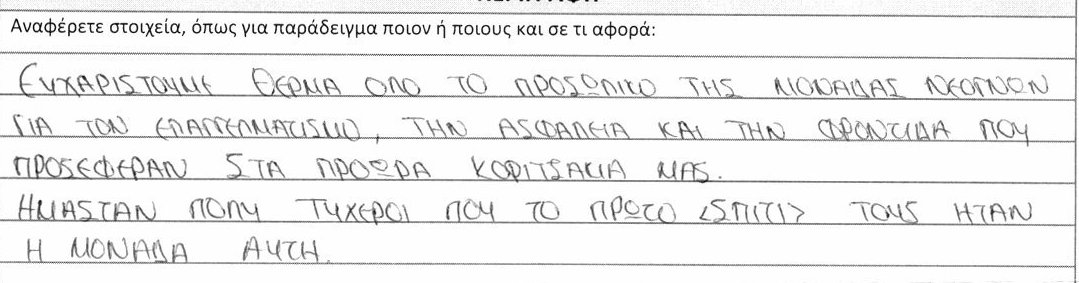 Αναφέρετε στοιχεία, όπως για παράδειγμα ποιον ή ποιους και σε τι αφορά:
ΕΥΧΑΡΙΣΤΟΥΜΕ ΘΕΡΜΑ ΟΛΟ ΤΟ ΠΡΟΣΩΠΙΚΟ ΤΗΣ ΜΟΝΑΔΑΣ ΝΕΟΓΝΩΝ
ΓΙΑ ΤΟΝ ΕΠΑΓΓΕΛΜΑΤΙΣΜΟ, ΤΗΝ ΑΣΦΑΛΕΙΑ ΚΑΙ ΤΗΝ ΦΡΟΝΤΙΔΑ ΠΟΥ
ΠΡΟΣΕΦΕΡΑΝ ΣΤΑ ΠΡΟΩΡΑ ΚΟΡΙΤΣΑΚΙΑ ΜΑΣ.
ΗΜΑΣΤΑΝ ΠΟΛΥ ΤΥΧΕΡΟΙ ΠΟΥ ΤΟ ΠΡΩΤΟ <ΣΠΙΤΙ> ΤΟΥΣ ΗΤΑΝ
Η ΜΟΝΑΔΑ ΑΥΤΗ.